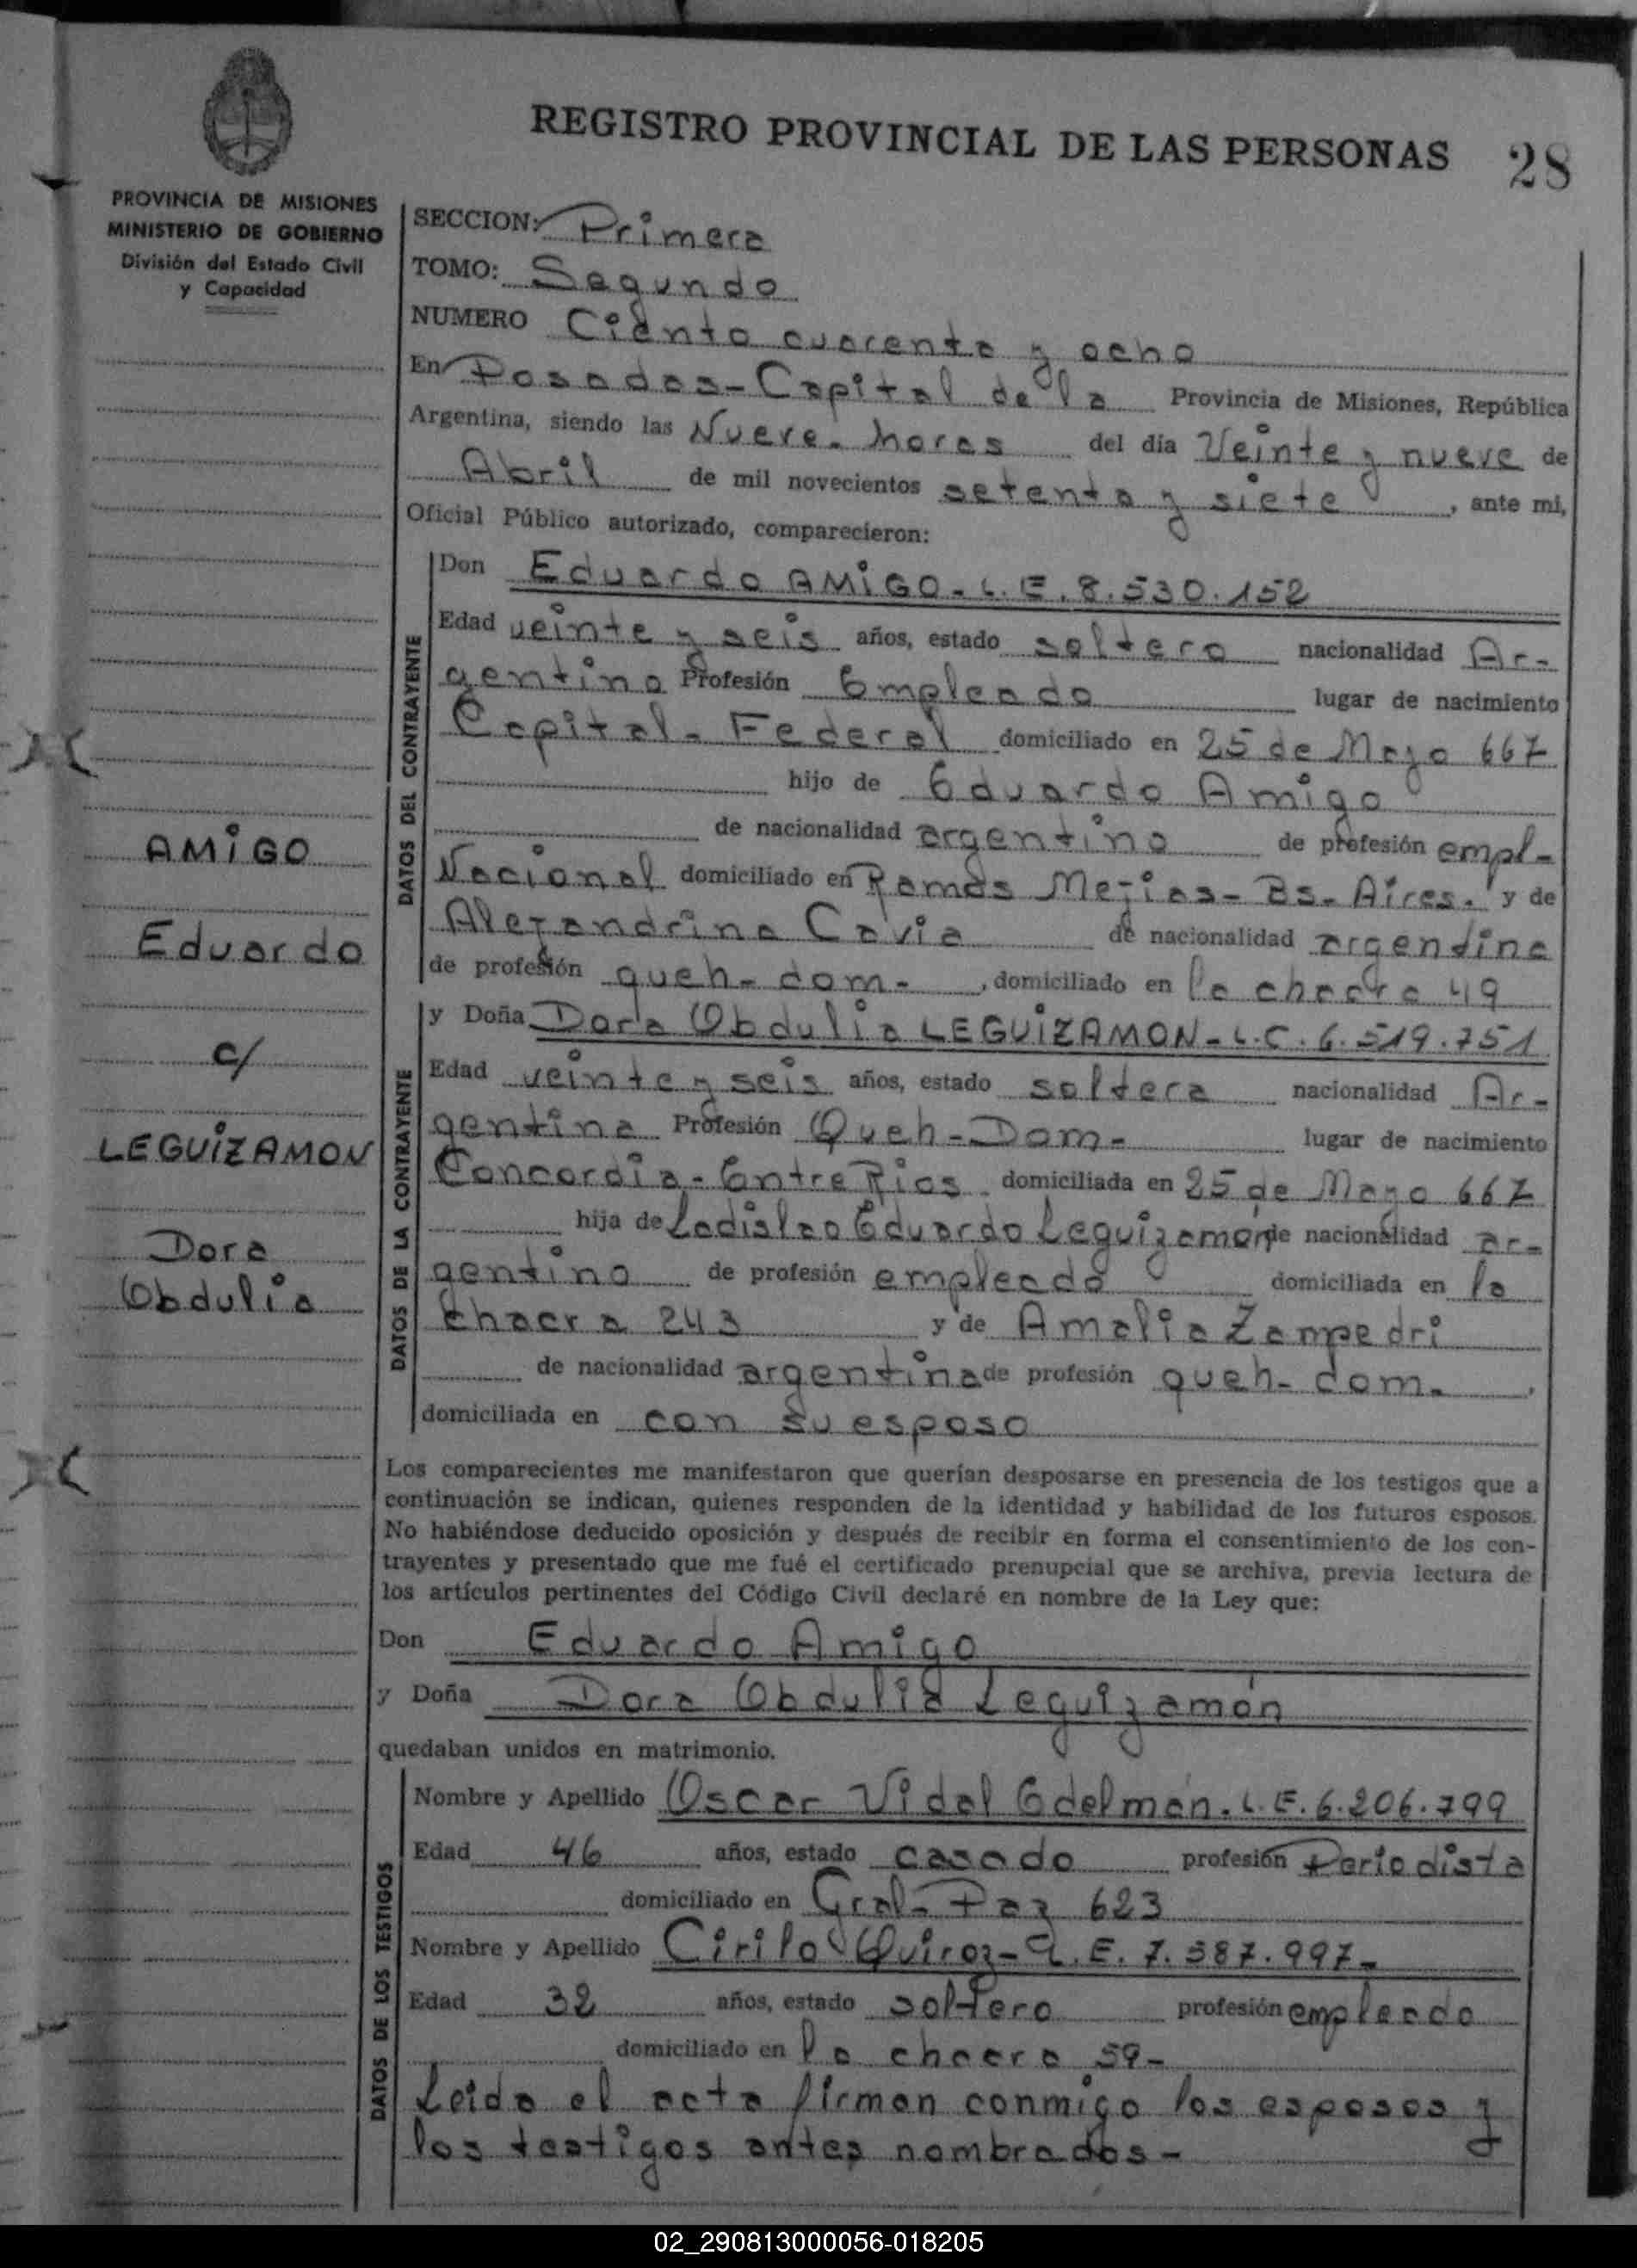 REGISTRO PROVINCIAL DE LAS PERSONAS 28
PROVINCIA DE MISIONES
MINISTERIO DE GOBIERNO
División del Estado Civil
y Capacidad
AMIGO
Eduardo
c/
LEGUIZAMON
Dora
Obdulia
SECCION: Primera
TOMO: Segundo
NUMERO Ciento cuarenta y ocho
En Posadas-Capital de la Provincia de Misiones, República
Argentina, siendo las Nueve-horas del día Veinte y nueve de
Abril de mil novecientos setenta y siete, ante mi,
Oficial Público autorizado, comparecieron:
DATOS DEL CONTRAYENTE
Don Eduardo AMIGO-L.E.8.530.152
Edad veinte y seis años, estado soltero nacionalidad Ar-
gentino Profesión Empleado lugar de nacimiento
Capital-Federal domiciliado en 25 de Mayo 667
hijo de Eduardo Amigo
de nacionalidad argentino de profesión empl-
Nacional domiciliado en Ramos Mejias-Bs-Aires. y de
Alejandrina Cavia de nacionalidad argentina
de profesión queh-dom-, domiciliado en la chacra 49
DATOS DE LA CONTRAYENTE
y Doña Dora Obdulia LEGUIZAMON-L.C.6.519.751
Edad veinte y seis años, estado soltera nacionalidad Ar-
gentina Profesión Queh-Dom- lugar de nacimiento
Concordia-Entre Rios domiciliada en 25 de Mayo 667
hija de Ladislao Eduardo Leguizamón de nacionalidad ar-
gentino de profesión empleado domiciliada en la
chacra 243 y de Amalia Zampedri
de nacionalidad argentina de profesión queh-dom-,
domiciliada en con su esposo
Los comparecientes me manifestaron que querían desposarse en presencia de los testigos que a
continuación se indican, quienes responden de la identidad y habilidad de los futuros esposos.
No habiéndose deducido oposición y después de recibir en forma el consentimiento de los con-
trayentes y presentado que me fué el certificado prenupcial que se archiva, previa lectura de
los artículos pertinentes del Código Civil declaré en nombre de la Ley que:
Don Eduardo Amigo
y Doña Dora Obdulia Leguizamón
quedaban unidos en matrimonio.
DATOS DE LOS TESTIGOS
Nombre y Apellido Oscar Vidal Edelman.L.E.6.206.799
Edad 46 años, estado casado profesión Periodista
domiciliado en Gral-Paz 623
Nombre y Apellido Cirilo Quiroz-L.E.7.587.997-
Edad 32 años, estado soltero profesión empleado
domiciliado en la chacra 59-
Leida el acta firman conmigo los esposos y
los testigos antes nombrados-
02_290813000056-018205